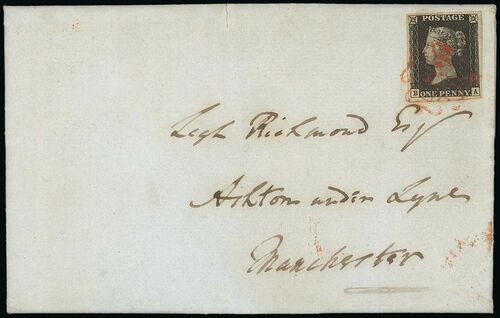 POSTAGE
ONE PENNY
E A
Legh Richmond Esq
Ashton under Lyne
Manchester